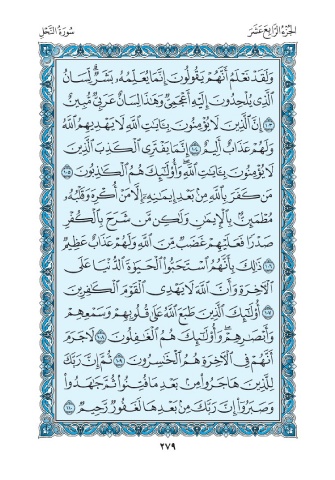 الجزء الرابع عشر
سورة النحل
وَلَقَدْ نَعْلَمُ أَنَّهُمْ يَقُولُونَ إِنَّمَا يُعَلِّمُهُۥ بَشَرٌ ۗ لِّسَانُ
ٱلَّذِى يُلْحِدُونَ إِلَيْهِ أَعْجَمِىٌّ وَهَٰذَا لِسَانٌ عَرَبِىٌّ مُّبِينٌ
١٠٣ إِنَّ ٱلَّذِينَ لَا يُؤْمِنُونَ بِـَٔايَٰتِ ٱللَّهِ لَا يَهْدِيهِمُ ٱللَّهُ
وَلَهُمْ عَذَابٌ أَلِيمٌ ١٠٤ إِنَّمَا يَفْتَرِى ٱلْكَذِبَ ٱلَّذِينَ
لَا يُؤْمِنُونَ بِـَٔايَٰتِ ٱللَّهِ ۖ وَأُو۟لَٰٓئِكَ هُمُ ٱلْكَٰذِبُونَ ١٠٥
مَن كَفَرَ بِٱللَّهِ مِنۢ بَعْدِ إِيمَٰنِهِۦٓ إِلَّا مَنْ أُكْرِهَ وَقَلْبُهُۥ
مُطْمَئِنٌّۢ بِٱلْإِيمَٰنِ وَلَٰكِن مَّن شَرَحَ بِٱلْكُفْرِ
صَدْرًا فَعَلَيْهِمْ غَضَبٌ مِّنَ ٱللَّهِ وَلَهُمْ عَذَابٌ عَظِيمٌ
١٠٦ ذَٰلِكَ بِأَنَّهُمُ ٱسْتَحَبُّوا۟ ٱلْحَيَوٰةَ ٱلدُّنْيَا عَلَى
ٱلْءَاخِرَةِ وَأَنَّ ٱللَّهَ لَا يَهْدِى ٱلْقَوْمَ ٱلْكَٰفِرِينَ
١٠٧ أُو۟لَٰٓئِكَ ٱلَّذِينَ طَبَعَ ٱللَّهُ عَلَىٰ قُلُوبِهِمْ وَسَمْعِهِمْ
وَأَبْصَٰرِهِمْ ۖ وَأُو۟لَٰٓئِكَ هُمُ ٱلْغَٰفِلُونَ ١٠٨ لَا جَرَمَ
أَنَّهُمْ فِى ٱلْءَاخِرَةِ هُمُ ٱلْخَٰسِرُونَ ١٠٩ ثُمَّ إِنَّ رَبَّكَ
لِلَّذِينَ هَاجَرُوا۟ مِنۢ بَعْدِ مَا فُتِنُوا۟ ثُمَّ جَٰهَدُوا۟
وَصَبَرُوٓا۟ إِنَّ رَبَّكَ مِنۢ بَعْدِهَا لَغَفُورٌ رَّحِيمٌ ١١٠
٢٧٩